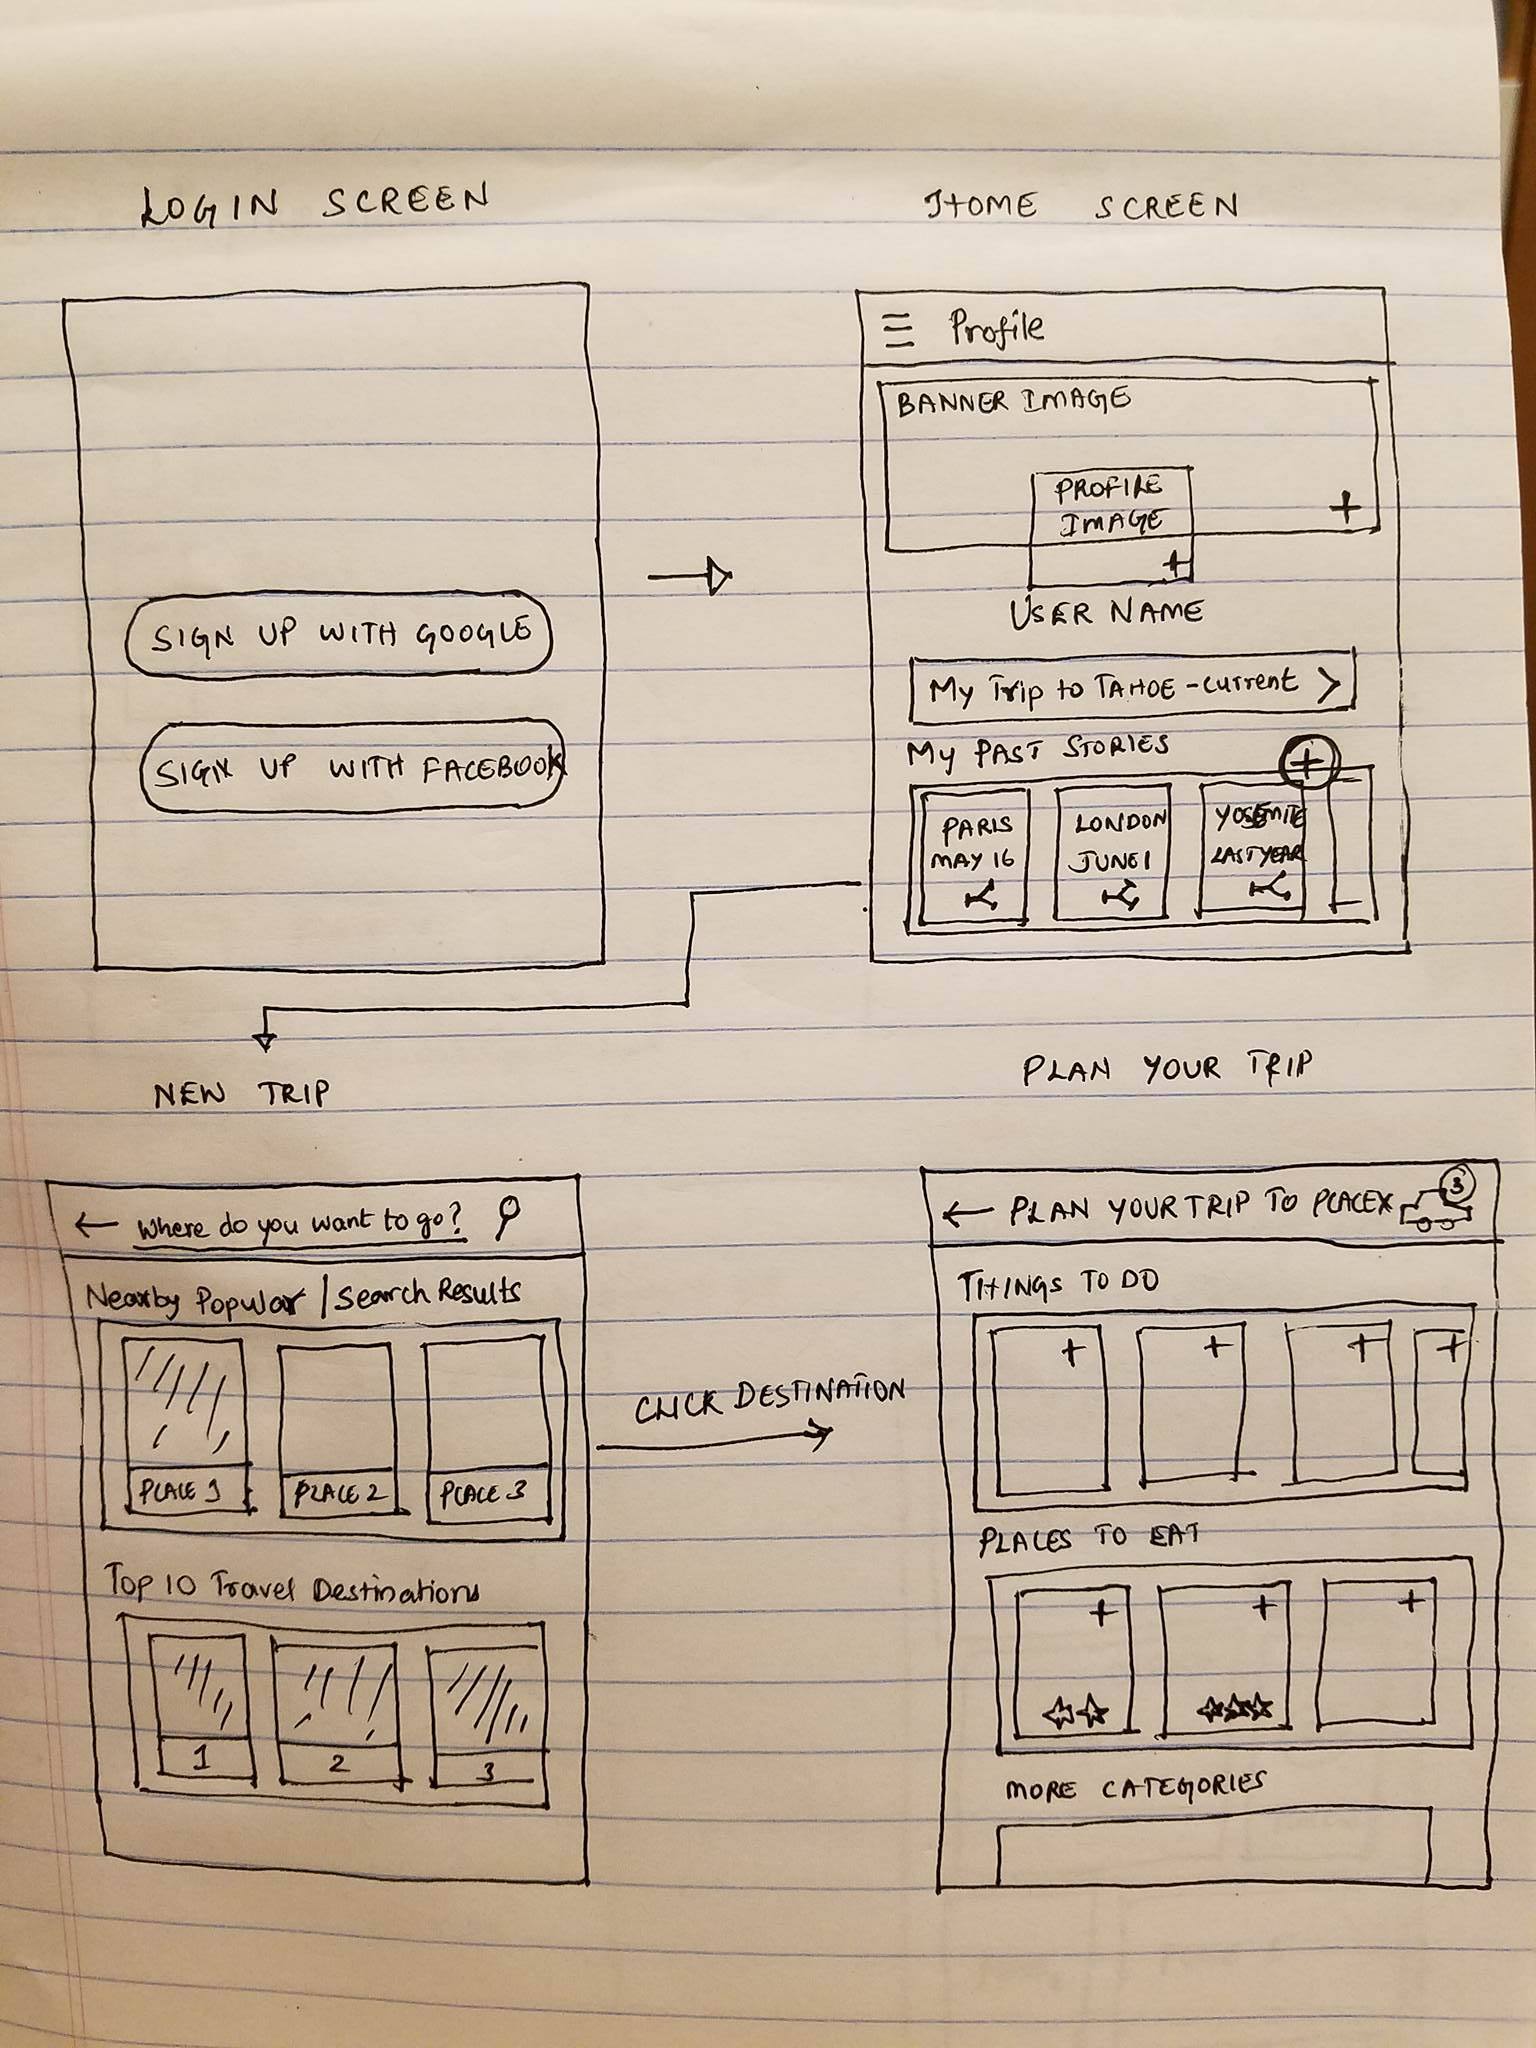 LOGIN SCREEN
SIGN UP WITH GOOGLE
SIGN UP WITH FACEBOOK
HOME SCREEN
Profile
BANNER IMAGE
PROFILE
IMAGE
+
+
USER NAME
My Trip to TAHOE - current >
My PAST STORIES
+
PARIS
MAY 16
LONDON
JUNE 1
YOSEMITE
LAST YEAR
NEW TRIP
Where do you want to go?
Nearby Popular / Search Results
PLACE 1
PLACE 2
PLACE 3
Top 10 Travel Destinations
1
2
3
CLICK DESTINATION
PLAN YOUR TRIP
PLAN YOUR TRIP TO PLACEX
3
THINGS TO DO
+ + + +
PLACES TO EAT
+ + +
MORE CATEGORIES